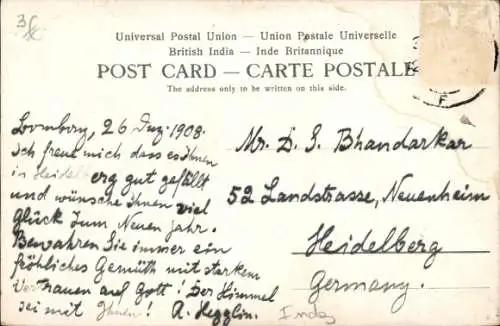 Universal Postal Union — Union Postale Universelle
British India — Inde Britannique
POST CARD — CARTE POSTALE
The address only to be written on this side.
26 Dez. 1908.
Ich freue mich dass es Ihnen
in Heidelberg gut gefällt
und wünsche Ihnen viel
Glück zum Neuen Jahr.
Bewahren Sie immer ein
fröhliches Gemüth mit starkem
Vertrauen auf Gott! Der Himmel
sei mit Ihnen! A. Hegglin.
Mr. D. S. Bhandarkar
52 Landstrasse, Neuenheim
Heidelberg
Germany.